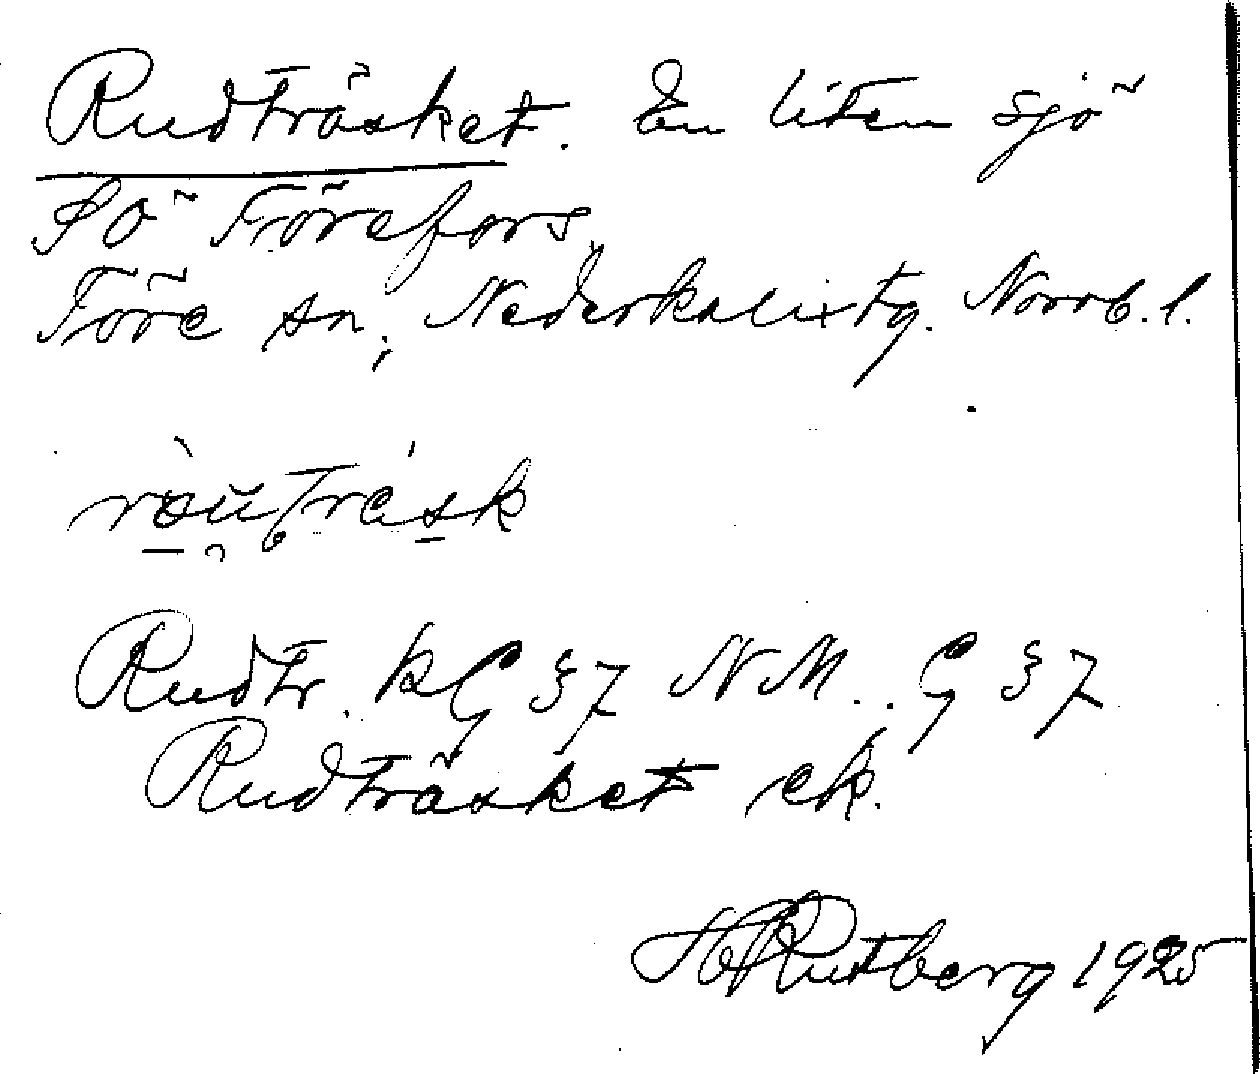 Rudträsket. En liten sjö
SÖ Törefors,
Töre sn; Nederkalix tg. Norrb. l.
Rudtr. kG §7 NM.. G §7
Rudträsket ek.
H Rutberg 1925